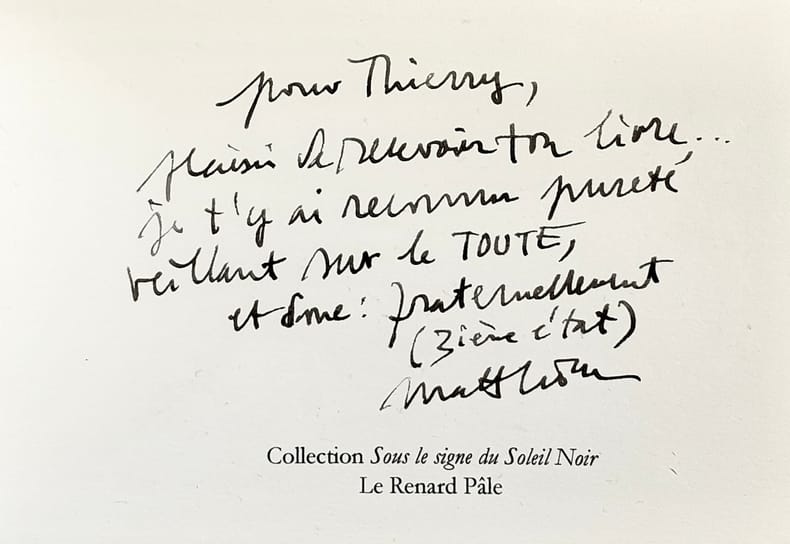 pour Thierry,
plaisir de recevoir ton livre...
je t'y ai reconnu pureté
veillant sur le TOUTE,
et donc : fraternellement
(3ième état)
Matthieu
Collection Sous le signe du Soleil Noir
Le Renard Pâle